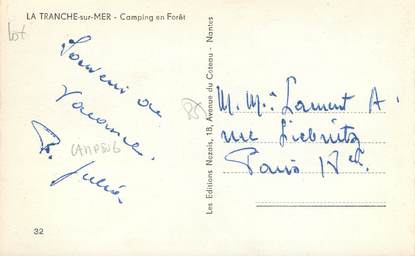 LA TRANCHE-sur-MER - Camping en Forêt
Lot
Souvenir de
Vacances.
CAMPING
Julien
32
Les Editions Nozais, 18, Avenue du Coteau - Nantes
M. Mme Laurent A.
rue Liebnitz
Paris 18e